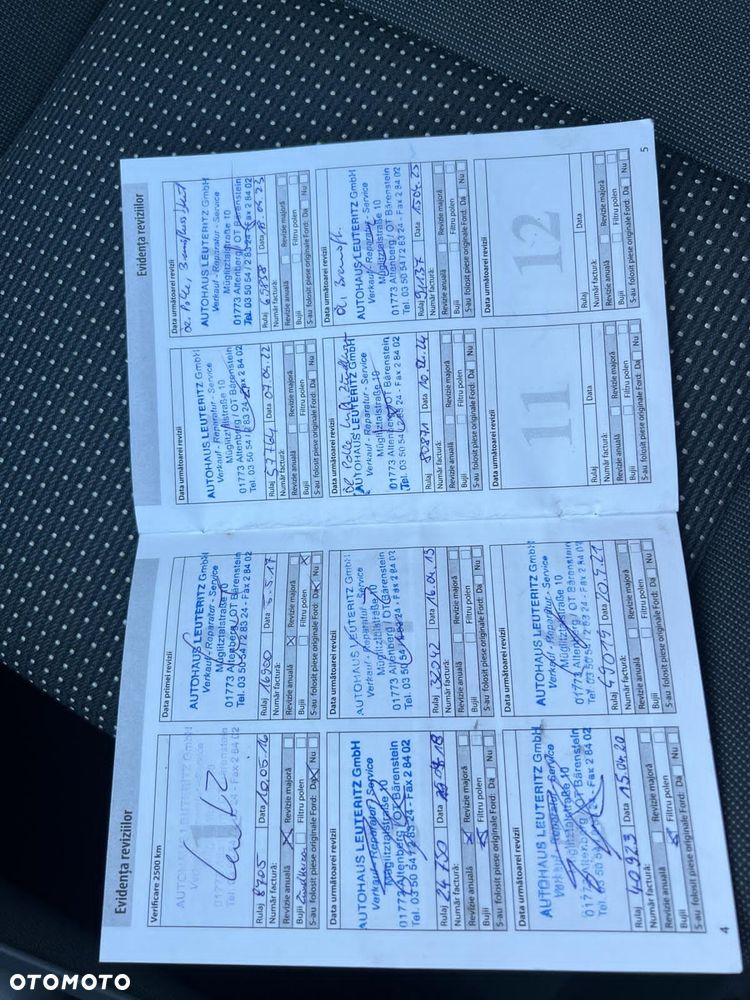 Evidența reviziilor
Verificare 2500 km
Rulaj 8705 Data 10.05.16
Număr factură:
Revizie anuală Revizie majoră
Bujii Filtru polen
S-au folosit piese originale Ford: Da Nu
Data primei revizii
AUTOHAUS LEUTERITZ GmbH
Verkauf - Reparatur - Service
Müglitztalstraße 10
01773 Altenberg / OT Bärenstein
Tel. 03 50 54 / 2 83 24 - Fax 2 84 02
Rulaj 16900 Data 5.5.17
Număr factură:
Revizie anuală Revizie majoră
Bujii Filtru polen
S-au folosit piese originale Ford: Da Nu
Data următoarei revizii
AUTOHAUS LEUTERITZ GmbH
Verkauf - Reparatur - Service
Müglitztalstraße 10
01773 Altenberg / OT Bärenstein
Tel. 03 50 54 / 2 83 24 - Fax 2 84 02
Rulaj 24750 Data
Număr factură:
Revizie anuală Revizie majoră
Bujii Filtru polen
S-au folosit piese originale Ford: Da Nu
Data următoarei revizii
AUTOHAUS LEUTERITZ GmbH
Verkauf - Reparatur - Service
Müglitztalstraße 10
01773 Altenberg / OT Bärenstein
Tel. 03 50 54 / 2 83 24 - Fax 2 84 02
Rulaj 32042 Data 16.04.19
Număr factură:
Revizie anuală Revizie majoră
Bujii Filtru polen
S-au folosit piese originale Ford: Da Nu
Data următoarei revizii
AUTOHAUS LEUTERITZ GmbH
Verkauf - Reparatur - Service
Müglitztalstraße 10
01773 Altenberg / OT Bärenstein
Tel. 03 50 54 / 2 83 24 - Fax 2 84 02
Rulaj 40923 Data 15.04.20
Număr factură:
Revizie anuală Revizie majoră
Bujii Filtru polen
S-au folosit piese originale Ford: Da Nu
Data următoarei revizii
AUTOHAUS LEUTERITZ GmbH
Verkauf - Reparatur - Service
Müglitztalstraße 10
01773 Altenberg / OT Bärenstein
Tel. 03 50 54 / 2 83 24 - Fax 2 84 02
Rulaj 47019 Data
Număr factură:
Revizie anuală Revizie majoră
Bujii Filtru polen
S-au folosit piese originale Ford: Da Nu
4
Evidența reviziilor
Data următoarei revizii
AUTOHAUS LEUTERITZ GmbH
Verkauf - Reparatur - Service
Müglitztalstraße 10
01773 Altenberg / OT Bärenstein
Tel. 03 50 54 / 2 83 24 - Fax 2 84 02
Rulaj 53764 Data 07.04.22
Număr factură:
Revizie anuală Revizie majoră
Bujii Filtru polen
S-au folosit piese originale Ford: Da Nu
Data următoarei revizii
AUTOHAUS LEUTERITZ GmbH
Verkauf - Reparatur - Service
Müglitztalstraße 10
01773 Altenberg / OT Bärenstein
Tel. 03 50 54 / 2 83 24 - Fax 2 84 02
Rulaj 63838 Data
Număr factură:
Revizie anuală Revizie majoră
Bujii Filtru polen
S-au folosit piese originale Ford: Da Nu
Data următoarei revizii
AUTOHAUS LEUTERITZ GmbH
Verkauf - Reparatur - Service
Müglitztalstraße 10
01773 Altenberg / OT Bärenstein
Tel. 03 50 54 / 2 83 24 - Fax 2 84 02
Rulaj 80871 Data
Număr factură:
Revizie anuală Revizie majoră
Bujii Filtru polen
S-au folosit piese originale Ford: Da Nu
Data următoarei revizii
AUTOHAUS LEUTERITZ GmbH
Verkauf - Reparatur - Service
Müglitztalstraße 10
01773 Altenberg / OT Bärenstein
Tel. 03 50 54 / 2 83 24 - Fax 2 84 02
Rulaj 94137 Data 15.04.25
Număr factură:
Revizie anuală Revizie majoră
Bujii Filtru polen
S-au folosit piese originale Ford: Da Nu
Data următoarei revizii
11
Rulaj Data
Număr factură:
Revizie anuală Revizie majoră
Bujii Filtru polen
S-au folosit piese originale Ford: Da Nu
Data următoarei revizii
12
Rulaj Data
Număr factură:
Revizie anuală Revizie majoră
Bujii Filtru polen
S-au folosit piese originale Ford: Da Nu
5
OTOMOTO